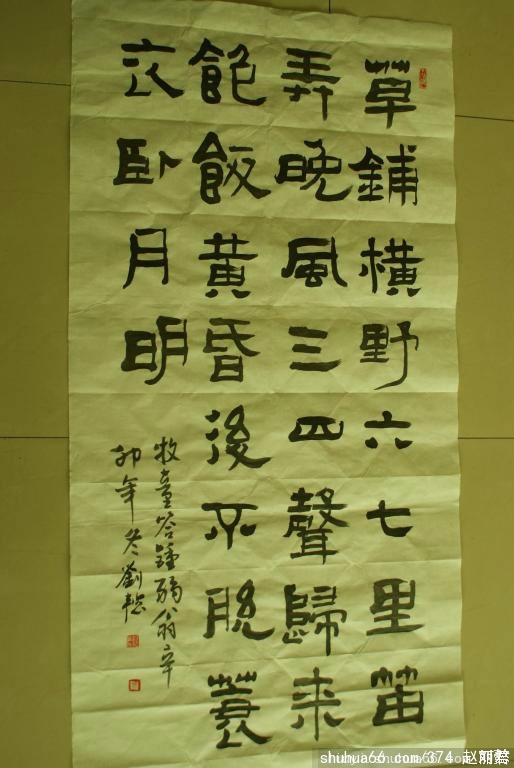 草鋪横野六七里笛
弄晚風三四聲歸来
飽飯黄昏後不脱蓑
衣卧月明
牧童答鍾弱翁辛
卯年冬劉
shuhua66 com/374